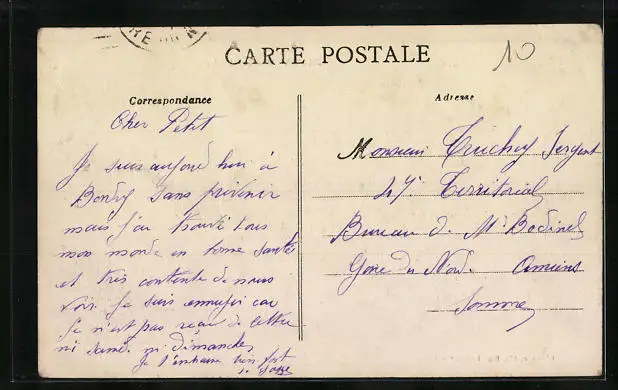 CARTE POSTALE
10
Correspondance
Adresse
Cher Petit
Je suis aujourd hui à
Bondy sans prévenir
mais j'ai trouvé tous
mon monde en bonne santé
et très contente de nous
voir. Je suis ennuyé car
je n'est pas reçu de lettre
ni samedi ni dimanche
je t'embrasse bien fort
Monsieur Truchy Sergent
47e Territorial
Bureau de Mr Bodinel
Gare du Nord. Amiens
Somme